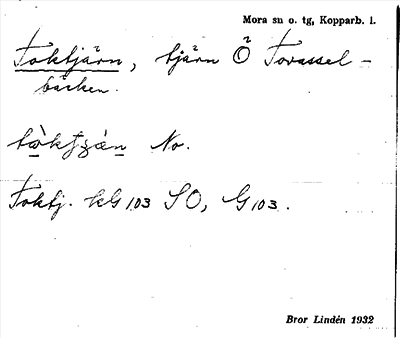 Mora sn o. tg, Kopparb. l.
Toktjärn, tjärn Ö Torassel-
bäcken.
No.
Toktj. kG 103 SO, G 103.
Bror Lindén 1932